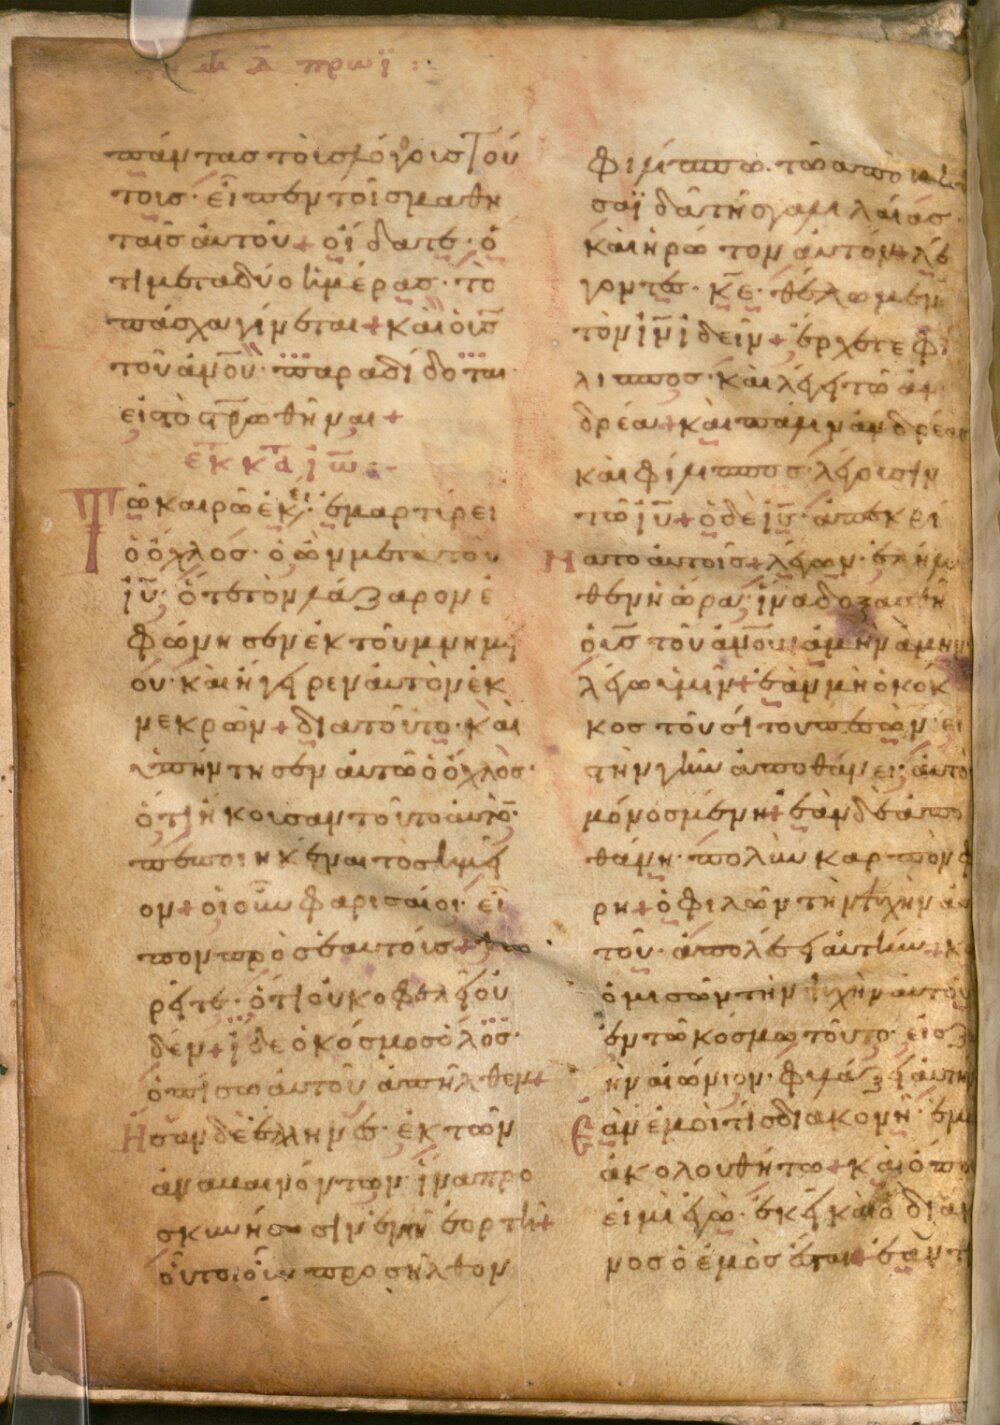 πρωϊ :·
πάντας τοὺς λόγους τού
τοις· εἶπεν τοῖς μαθη
ταῖς αὐτοῦ + οἴδατε· ὅ
τι μεταδύο ἡμέρας· τὸ
πάσχα γίνεται + καὶ ὁ υς
τοῦ ανου· παραδίδοται
εἰς τὸ στρωθῆναι +
ἐκ κτ ιω :-
Τῶ καιρῶ ἐκει· ἐμαρτίρει
ὁ ὄχλος· ὁ ὢν μετὰ τοῦ
ιυ· ὅτε τὸν λάζαρον ἐ
φώνησεν ἐκ τοῦ μνημι
ου· καὶ ἤγειρεν αὐτὸν ἐκ
νεκρῶν + διατοῦτο· καὶ
ὑπήντησεν αὐτῶ ὁ ὄχλος·
ὅτι ἤκουσαν τοῦτο αὐτὸν
πεποιηκέναι τὸ σημεῖ
ον + οἱ οὖν φαρισαίοι· εἶ
πον πρὸς ἑαυτοίς + θεω
ρεῖτε· ὅτι οὐκ οφελεῖ οὐ
δέν + ἴδε ὁ κόσμος ὅλος·
ὀπίσω αὐτοῦ ἀπῆλθεν +
Ησαν δὲ ἕλληνες· ἐκ τῶν
ἀναβαινόντων ἵνα προ
σκυνήσωσιν ἐν τῆ ἑορτῆ +
οὗτοι οὖν προσῆλθον
φιλίππω· τῶ ἀπὸ
σαϊδὰ τῆς γαλιλαίας·
καὶ ἠρώτον αὐτὸν + λέ
γοντες· κε· θέλωμεν
τὸν ιν ἰδεῖν + ἔρχετε φι
λιππος· καὶ λέγει τῶ ἀν
δρέα + καὶ πάλιν ἀνδρέας
καὶ φίλιππος· λέγουσιν
τῶ ιυ + ὁ δὲ ις· ἀπεκρί
Νατο αὐτοῖς + λέγων· ἐλήλυ
θεν ἡ ὥρα· ἵνα δοξασθῆ
ὁ υς τοῦ ανου + ἀμὴν ἀμην
λέγω ὑμῖν + ἐὰν μὴ ὁ κόκ
κος τοῦ σίτου πεσὼν· εἰ
τὴν γῆν ἀποθάνει· αὐτὸ
μόνος μένη + ἐὰν δὲ ἀπο
θάνη· πολὺν καρπὸν φ
ρη + ὁ φιλῶν τὴν ψυχὴν αὐ
τοῦ· ἀπολέσει αὐτὴν + κ
ὁ μισῶν τὴν ψυχὴν αὐτοῦ
ἐν τῶ κόσμω τοῦτο· εἰς ζ
ὴν αἰώνιον· φυλάξει αὐτη
Εὰν ἐμοὶ τὶς διακονῆ· ἐμ
ἀκολουθήτω + καὶ ὅπου
εἰμὶ ἐγὼ· ἐκεῖ καὶ ὁ διακ
νος ὁ ἐμὸς ἔσται + ἐὰν τ